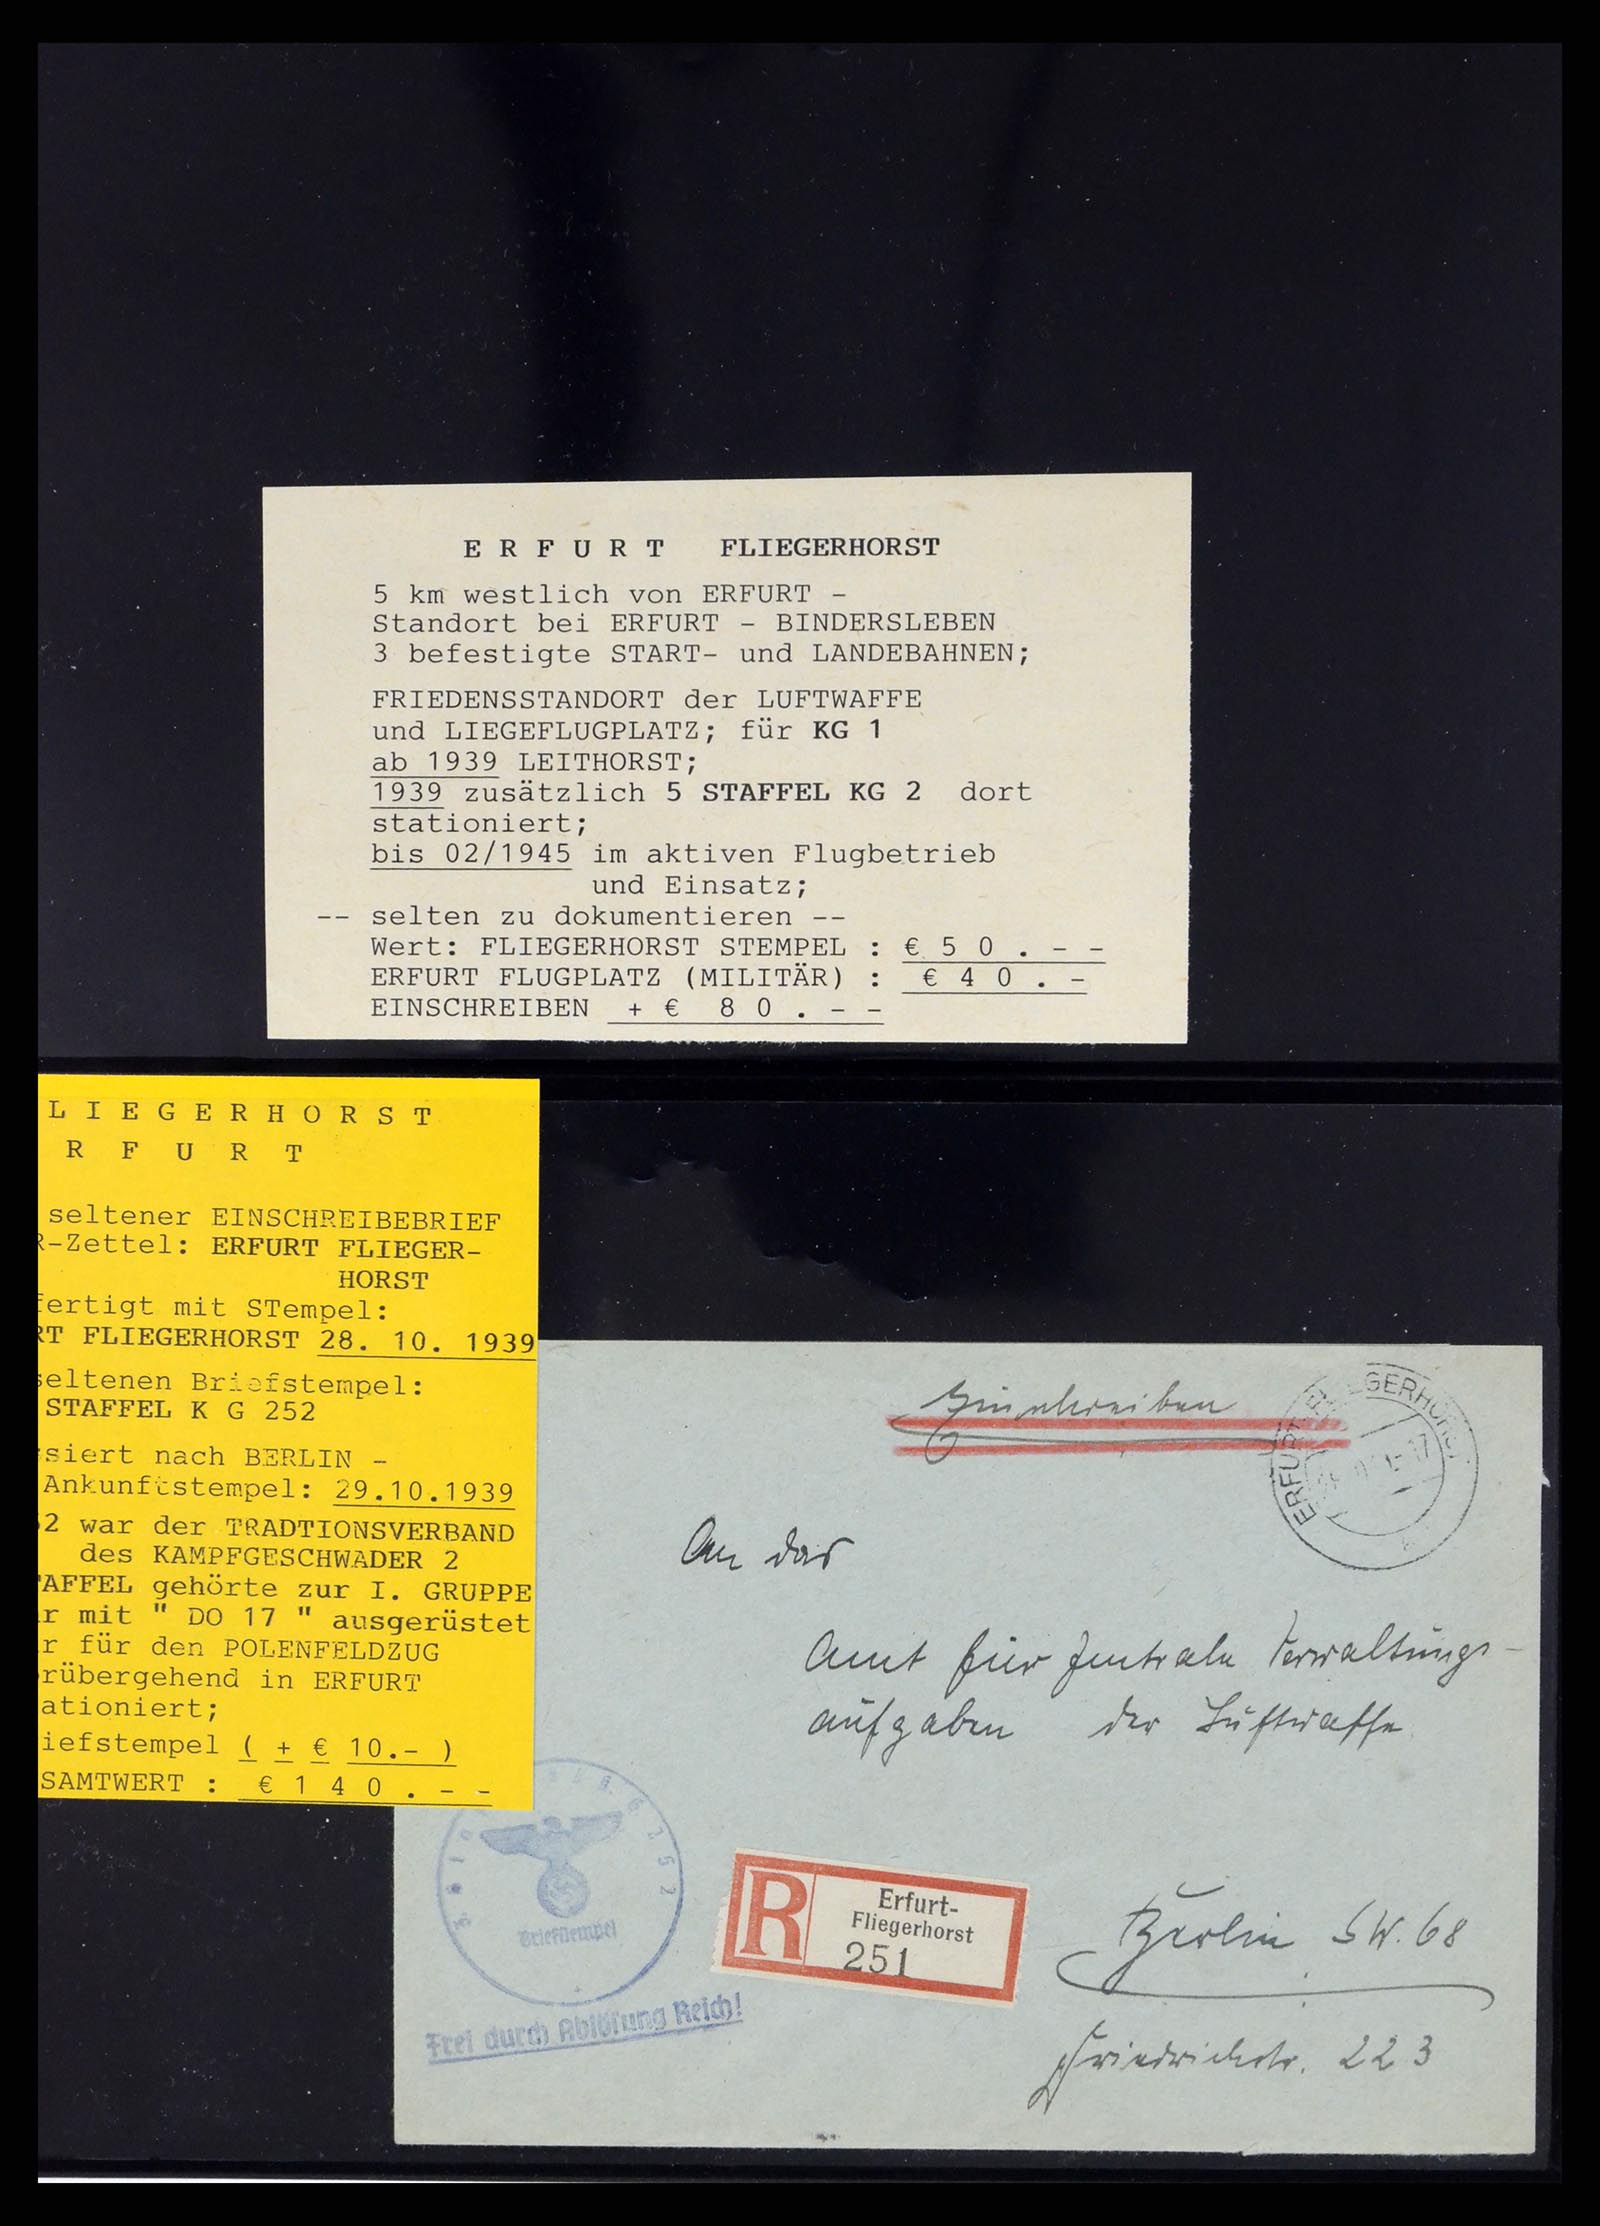 E R F U R T FLIEGERHORST
5 km westlich von ERFURT -
Standort bei ERFURT - BINDERSLEBEN
3 befestigte START- und LANDEBAHNEN;
FRIEDENSSTANDORT der LUFTWAFFE
und LIEGEFLUGPLATZ; für KG 1
ab 1939 LEITHORST;
1939 zusätzlich 5 STAFFEL KG 2 dort
stationiert;
bis 02/1945 im aktiven Flugbetrieb
und Einsatz;
-- selten zu dokumentieren --
Wert: FLIEGERHORST STEMPEL : € 5 0 . - -
ERFURT FLUGPLATZ (MILITÄR) : € 4 0 . -
EINSCHREIBEN + € 8 0 . - -
L I E G E R H O R S T
R F U R T
seltener EINSCHREIBEBRIEF
R-Zettel: ERFURT FLIEGER-
HORST
fertigt mit STempel:
RT FLIEGERHORST 28. 10. 1939
seltenen Briefstempel:
STAFFEL K G 252
ssiert nach BERLIN -
Ankunftstempel: 29.10.1939
52 war der TRADTIONSVERBAND
des KAMPFGESCHWADER 2
TAFFEL gehörte zur I. GRUPPE
r mit " DO 17 " ausgerüstet
r für den POLENFELDZUG
rübergehend in ERFURT
ationiert;
iefstempel ( + € 10.- )
SAMTWERT : € 1 4 0 . - -
Einschreiben
ERFURT FLIEGERHORST
An das
Amt für zentrale Verwaltungs-
aufgaben der Luftwaffe
Briefstempel
R
Erfurt-
Fliegerhorst
251
Frei durch Ablösung Reich!
Berlin SW. 68
Friedrichstr. 223